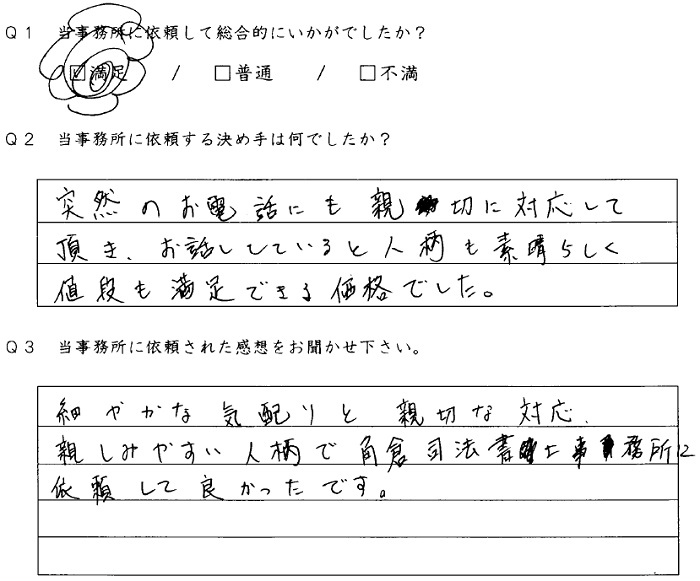 Q1 当事務所に依頼して総合的にいかがでしたか？
☑満足 / □普通 / □不満
Q2 当事務所に依頼する決め手は何でしたか？
突然のお電話にも親切に対応して
頂き、お話ししていると人柄も素晴らしく
値段も満足できる価格でした。
Q3 当事務所に依頼された感想をお聞かせ下さい。
細やかな気配りと親切な対応、
親しみやすい人柄で角倉司法書士事務所に
依頼して良かったです。